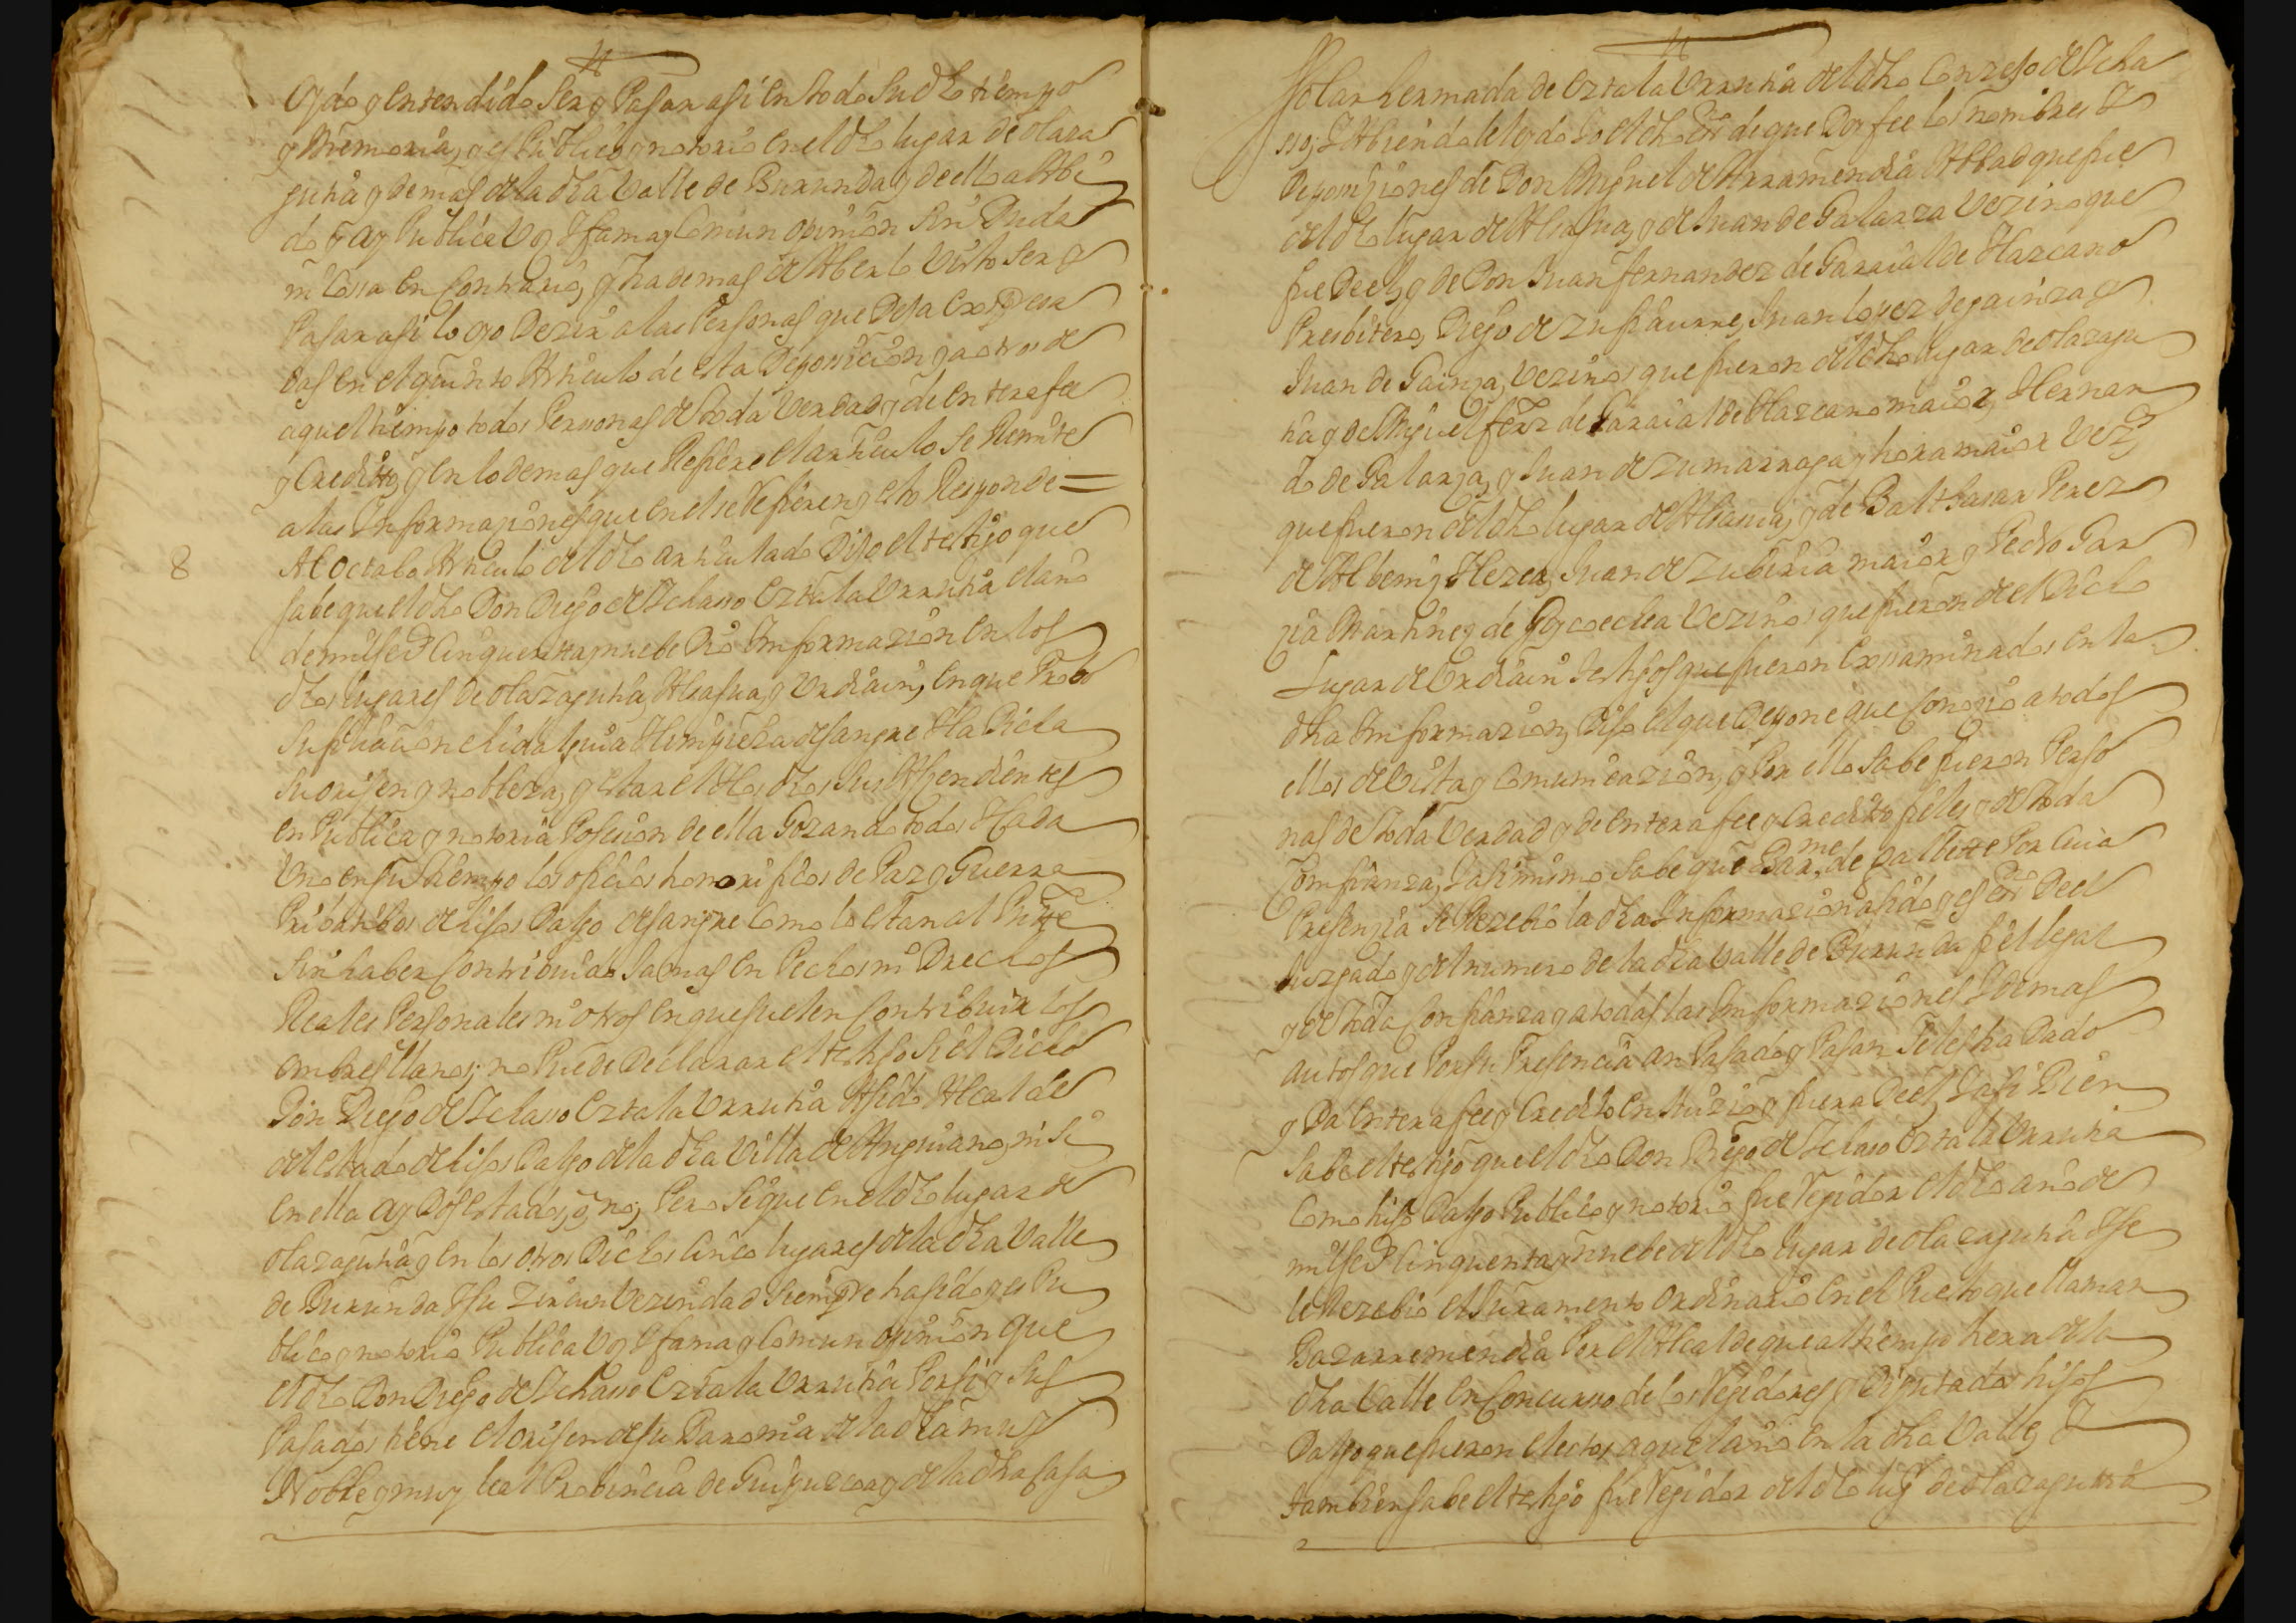 Oydo y entendido Ser y Pasar asi en todo Su dho tiempo
y Memoria, y es Publico y notorio en el dho lugar de olaza
gutia y demas de la dha Valle de Burunda y de ello a Abi
do y ay Publica Voz y fama y Comun opinion Sin Duda
ni Cossa en Contrario, y ha demas de Aberlo Visto Ser y
Pasar asi lo oyo Dezir a las Personas que Deja Expresa
das en el quinto Articulo de esta Deposicion y a otros de
aquel tiempo todos Personas de toda Verdad y de entera fee
y Credito, y en lo demas que Refiere el articulo Se Remite
a las Informaziones que en el se Refieren y esto Responde =
8 Al Octabo Articulo del dho articulado Dijo el testigo que
Sabe que el dho Don Diego de Ichasso Eztala Urrutia el año
de mill seis Cinquenta y nuebe Dio Informazion en los
dhos lugares de olazagutia, Alsasua, y Urdiain, en que Probo
Su filiacion elidalguia Ylimpieza de Sangre Yla Dicha
Su orijen y nobleza, y estar el Ylos dhos Sus Aszendientes
en Publica y notoria Posesion de ella Gozando todos Ycada
Uno en su tiempo los oficios honorificos de Paz y Guerra
Pribatibos de hijos Dalgo de Sangre Como lo estan al Pnte
Sin haber Contribuido Jamas en Pechos ni Drechos
Reales Personales ni otros en que Suelen Contribuir los
ombres llanos; no Puede Declarar el testigo Si el Dicho
Don Diego de Ichasso Eztala Urrutia A sido Alcalde
del estado de hijos Dalgo de la dha Villa de Anguiano, ni Si
en ella ay Dos estados, o no, Pero Si que en el dho lugar de
olazagutia y en los otros Dichos Cinco lugares de la dha Valle
de Burunda Y su Zircunvezindad Siempre ha sido y es Pu
blico y notorio Publica Voz Y fama y Comun opinion que
el dho Don Diego de Ichasso Eztala Urrutia Por si y Sus
Pasados tiene el orijen de su Baronia de la dha muy
Noble y muy leal Probincia de Guipuzcoa y de la dha Casa
Solar y armada de Eztala Urrutia del dho Conzejo de Icha
sso; Y Abiendole leydo Yo el dho essno de que Doy fee los nombres Y
Deposiziones de Don Miguel de Arramendia Abbad que fue
del dho lugar de Alsasua, y de Juan de Galarza Vezino que
fue De el, y de Don Juan fernandez de Garaialde Yazcano
Presbitero, Diego de Zufiaurre, Juan lopez de gainza y
Juan de Gainza, Vezinos que fueron del dho lugar de olazagu
tia y de Miguel ferrz de Garaialde Yazcano maior, Hernan
do de Galarza, y Juan de Zumarraga y hora maior Vezos
que fueron del dho lugar de Alsasua, y de Balthasar Perez
de Albeniz Ylezea, Juan de Zubiria maior y Pedro Gar
zia Martinez de Goycoechea Vezinos que fueron de el Dicho
Lugar de Urdiain testigos que fueron Exssaminados en la
dha Informazion, Dijo el que Depone que Conozio a todos
ellos de Vista y Comunicazion, y Por ello Sabe fueron Perso
nas de toda Verdad y de entera fee y Credito fieles y de toda
Comfianza, Y asi mismo Sabe que Barme de galbete Por Cuia
Presenzia Se Rezebio la dha Informazion a sido y es essno De el
Juzgado y del numero de la dha Valle de Burunda fiel legal
y de toda Confianza y a todas las Informaziones Y demas
autos que Por su Presencia an Pasado y Pasan Se les ha Dado
y Da entera fee y Credito en Juizio y fuera De el, Y asi Bien
Sabe el testigo que el dho Don Diego de Ichasso Eztala Urrutia
Como hijo Dalgo Publico y notorio fue Rejidor el dho año de
mill seis Cinquenta y nuebe del dho lugar de olazagutia Y se
le Rezebio el Juramento Ordinario en el Puesto que llaman
Bazarremendia Por el Alcalde que al tiempo hera de la
dha Valle en Concurso de los Rejidores y Diputados hijos
Dalgo que fueron electos aquel año en la dha Valle, Y
tambien Sabe el testigo fue Rejidor del dho lugr de olazagutia